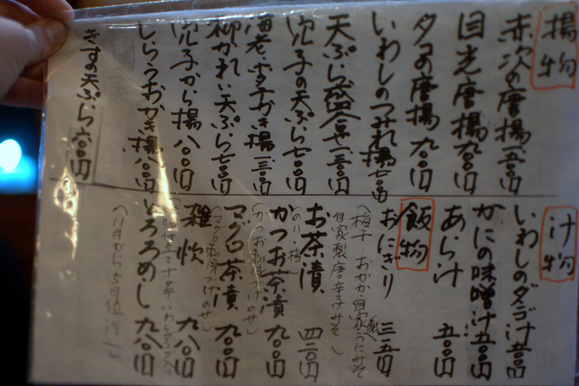 揚物
赤次の唐揚 一五〇円
目光唐揚 九〇〇円
タコの唐揚 九〇〇円
いわしのつみれ揚 七〇〇円
天ぷら盛合せ 一五〇〇円
沈子の天ぷら 七〇〇円
海老 かき揚 一三〇〇円
柳かれい天ぷら 七〇〇円
沈子から揚 八〇〇円
しらうおかき揚 八〇〇円
きすの天ぷら 六〇〇円
汁物
いわしのダゴ汁
かにの味噌汁 五〇〇円
あら汁 五〇〇円
飯物
おにぎり 三五〇円
(梅干 おかか 自家 うにみそ
自家製唐辛子みそ)
お茶漬 四二〇円
(のり・梅)
かつお茶漬 九〇〇円
(かつお刺身 のせ)
マグロ茶漬 九〇〇円
(マグロ刺身 のせ)
雑炊 九八〇円
いろろめし 九八〇円
(11月から5月位迄)